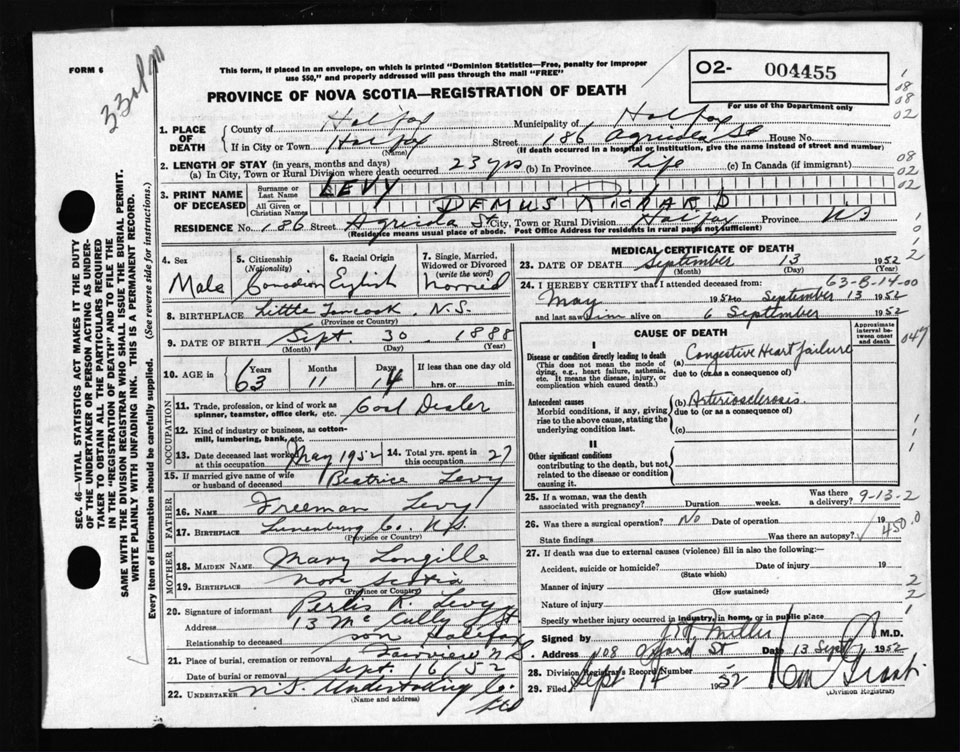 33
FORM 6
This form, if placed in an envelope, on which is printed "Dominion Statistics—Free, penalty for improper
use $50," and properly addressed will pass through the mail "FREE"
O2- 004455
PROVINCE OF NOVA SCOTIA—REGISTRATION OF DEATH
For use of the Department only
1. PLACE OF DEATH
County of Halifax Municipality of Halifax
If in City or Town Halifax Street 186 Agricola St House No.
(Name) (If death occurred in a hospital or institution, give the name instead of street and number)
2. LENGTH OF STAY (in years, months and days)
(a) In City, Town or Rural Division where death occurred 23 yrs (b) In Province Life (c) In Canada (if immigrant)
3. PRINT NAME OF DECEASED
Surname or Last Name LEVY
All Given or Christian Names DEMUS RICHARD
RESIDENCE No. 186 Street Agricola St. City, Town or Rural Division Halifax Province N.S
(Residence means usual place of abode. Post Office Address for residents in rural parts not sufficient)
4. Sex Male
5. Citizenship (Nationality) Canadian
6. Racial Origin English
7. Single, Married, Widowed or Divorced (write the word) Married
8. BIRTHPLACE Little Tancook, N.S.
(Province or Country)
9. DATE OF BIRTH Sept. 30 1888
(Month) (Day) (Year)
10. AGE in Years 63 Months 11 Days 14 If less than one day old hrs. or min.
OCCUPATION
11. Trade, profession, or kind of work as spinner, teamster, office clerk, etc. Coal Dealer
12. Kind of industry or business, as cotton-mill, lumbering, bank, etc.
13. Date deceased last worked at this occupation May 1952 14. Total yrs. spent in this occupation 27
15. If married give name of wife or husband of deceased Beatrice Levy
FATHER
16. NAME Freeman Levy
17. BIRTHPLACE Lunenburg Co. N.S.
(Province or Country)
MOTHER
18. MAIDEN NAME Mary Longille
19. BIRTHPLACE Nova Scotia
(Province or Country)
20. Signature of informant Perlis R. Levy
Address 13 McCully St
Relationship to deceased son Halifax
21. Place of burial, cremation or removal Fairview N.S
Date of burial or removal Sept. 16 52
22. UNDERTAKER N.S. Undertaking Co. Ltd
(Name and address)
MEDICAL CERTIFICATE OF DEATH
23. DATE OF DEATH September 13 1952
(Month) (Day) (Year)
63-8-14-00
24. I HEREBY CERTIFY that I attended deceased from
May 1952 to September 13 1952
and last saw him alive on 6 September 1952
CAUSE OF DEATH
Approximate interval between onset and death
I
Disease or condition directly leading to death
(This does not mean the mode of dying, e.g., heart failure, asthenia, etc. It means the disease, injury, or complication which caused death.)
(a) Congestive Heart failure
due to (or as a consequence of)
Antecedent causes
Morbid conditions, if any, giving rise to the above cause, stating the underlying condition last.
(b) Arteriosclerosis.
due to (or as a consequence of)
(c)
II
Other significant conditions
contributing to the death, but not related to the disease or condition causing it.
25. If a woman, was the death associated with pregnancy? Duration weeks. Was there a delivery? 9-13-2
26. Was there a surgical operation? No Date of operation 19
State findings Was there an autopsy? 450.0
27. If death was due to external causes (violence) fill in also the following:—
Accident, suicide or homicide? Date of injury 19
(State which)
Manner of injury
(How sustained)
Nature of injury
Specify whether injury occurred in industry, in home, or in public place
Signed by Miller M.D.
Address 408 Oxford St Date 13 Sept 1952
28. Division Registrar's Record Number
29. Filed Sept 14 1952 Grant
(Division Registrar)
SEC. 46—VITAL STATISTICS ACT MAKES IT THE DUTY
OF THE UNDERTAKER OR PERSON ACTING AS UNDER-
TAKER TO OBTAIN ALL THE PARTICULARS REQUIRED
IN THE "REGISTRATION OF DEATH" AND TO FILE THE
SAME WITH THE DIVISION REGISTRAR WHO SHALL ISSUE THE BURIAL PERMIT.
WRITE PLAINLY WITH UNFADING INK. THIS IS A PERMANENT RECORD.
Every item of information should be carefully supplied. (See reverse side for instructions.)
1
08
08
02
08
02
1
0
1
2
047
1
1
1
2
2
1